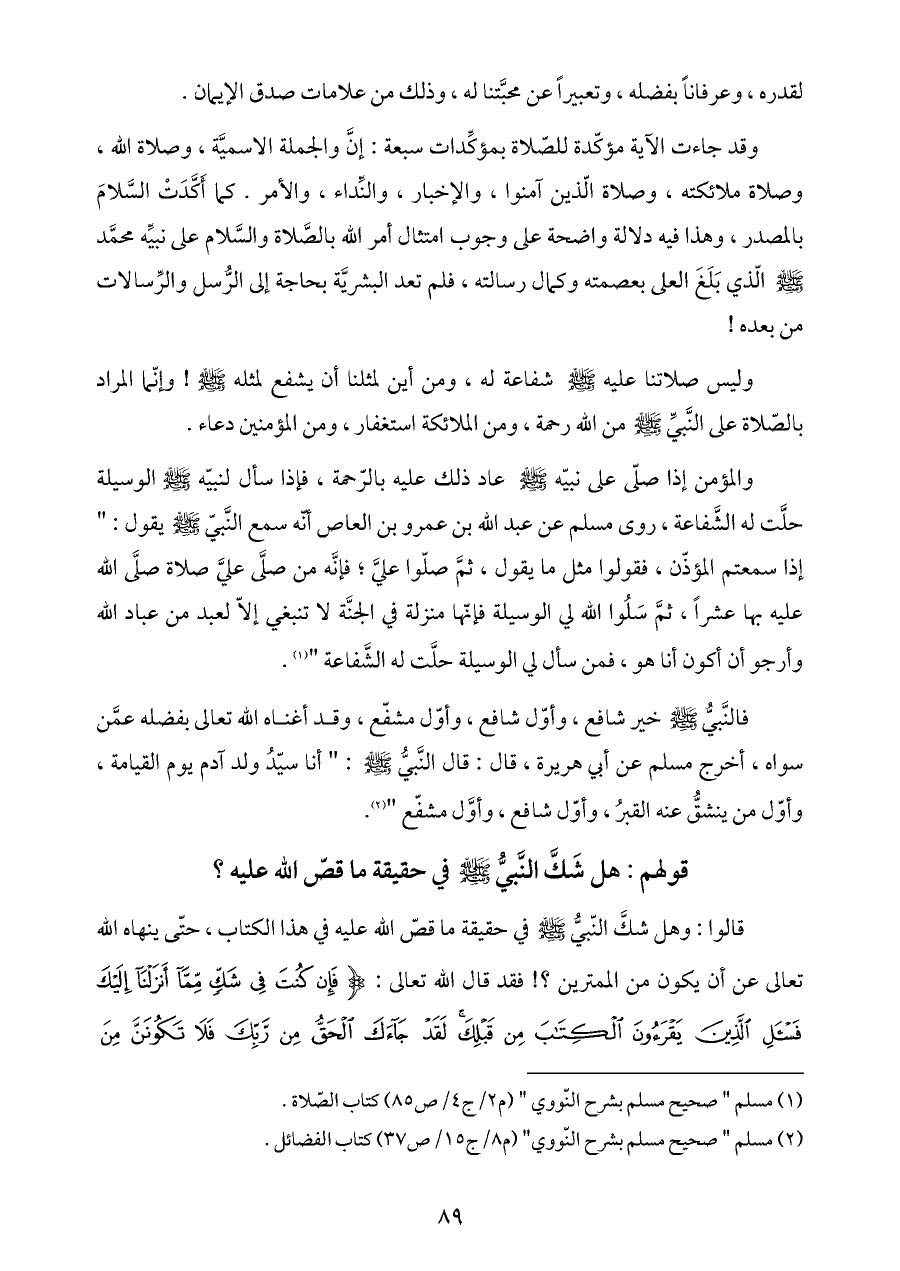 لقدره ، وعرفاناً بفضله ، وتعبيراً عن محبَّتنا له ، وذلك من علامات صدق الإيمان .
وقد جاءت الآية مؤكّدة للصّلاة بمؤكِّدات سبعة : إنَّ والجملة الاسميَّة ، وصلاة الله ،
وصلاة ملائكته ، وصلاة الّذين آمنوا ، والإخبار ، والنِّداء ، والأمر . كما أَكَّدَتْ السَّلامَ
بالمصدر ، وهذا فيه دلالة واضحة على وجوب امتثال أمر الله بالصَّلاة والسَّلام على نبيِّه محمَّد
ﷺ الّذي بَلَغَ العلى بعصمته وكمال رسالته ، فلم تعد البشريَّة بحاجة إلى الرُّسل والرِّسالات
من بعده !
وليس صلاتنا عليه ﷺ شفاعة له ، ومن أين لمثلنا أن يشفع لمثله ﷺ ! وإنّما المراد
بالصّلاة على النَّبيِّ ﷺ من الله رحمة ، ومن الملائكة استغفار ، ومن المؤمنين دعاء .
والمؤمن إذا صلّى على نبيّه ﷺ عاد ذلك عليه بالرّحمة ، فإذا سأل لنبيّه ﷺ الوسيلة
حلَّت له الشَّفاعة ، روى مسلم عن عبد الله بن عمرو بن العاص أنّه سمع النَّبيّ ﷺ يقول : "
إذا سمعتم المؤذّن ، فقولوا مثل ما يقول ، ثمَّ صلّوا عليَّ ؛ فإنَّه من صلَّى عليَّ صلاة صلَّى الله
عليه بها عشراً ، ثمَّ سَلُوا الله لي الوسيلة فإنّها منزلة في الجنَّة لا تنبغي إلاّ لعبد من عباد الله
وأرجو أن أكون أنا هو ، فمن سأل لي الوسيلة حلَّت له الشَّفاعة "(١) .
فالنَّبيُّ ﷺ خير شافع ، وأوّل شافع ، وأوّل مشفّع ، وقد أغناه الله تعالى بفضله عمَّن
سواه ، أخرج مسلم عن أبي هريرة ، قال : قال النَّبيُّ ﷺ : " أنا سيّدُ ولد آدم يوم القيامة ،
وأوّل من ينشقُّ عنه القبرُ ، وأوّل شافع ، وأوَّل مشفّع "(٢).
قولهم : هل شَكَّ النَّبيُّ ﷺ في حقيقة ما قصّ الله عليه ؟
قالوا : وهل شكَّ النّبيُّ ﷺ في حقيقة ما قصّ الله عليه في هذا الكتاب ، حتّى ينهاه الله
تعالى عن أن يكون من الممترين ؟! فقد قال الله تعالى : ﴿ فَإِن كُنتَ فِى شَكٍّ مِّمَّآ أَنزَلْنَآ إِلَيْكَ
فَسْـَٔلِ ٱلَّذِينَ يَقْرَءُونَ ٱلْكِتَـٰبَ مِن قَبْلِكَ ۚ لَقَدْ جَآءَكَ ٱلْحَقُّ مِن رَّبِّكَ فَلَا تَكُونَنَّ مِنَ
(١) مسلم " صحيح مسلم بشرح النّووي " (م٢/ ج٤/ ص٨٥) كتاب الصّلاة .
(٢) مسلم " صحيح مسلم بشرح النّووي" (م٨/ ج١٥/ ص٣٧) كتاب الفضائل .
٨٩